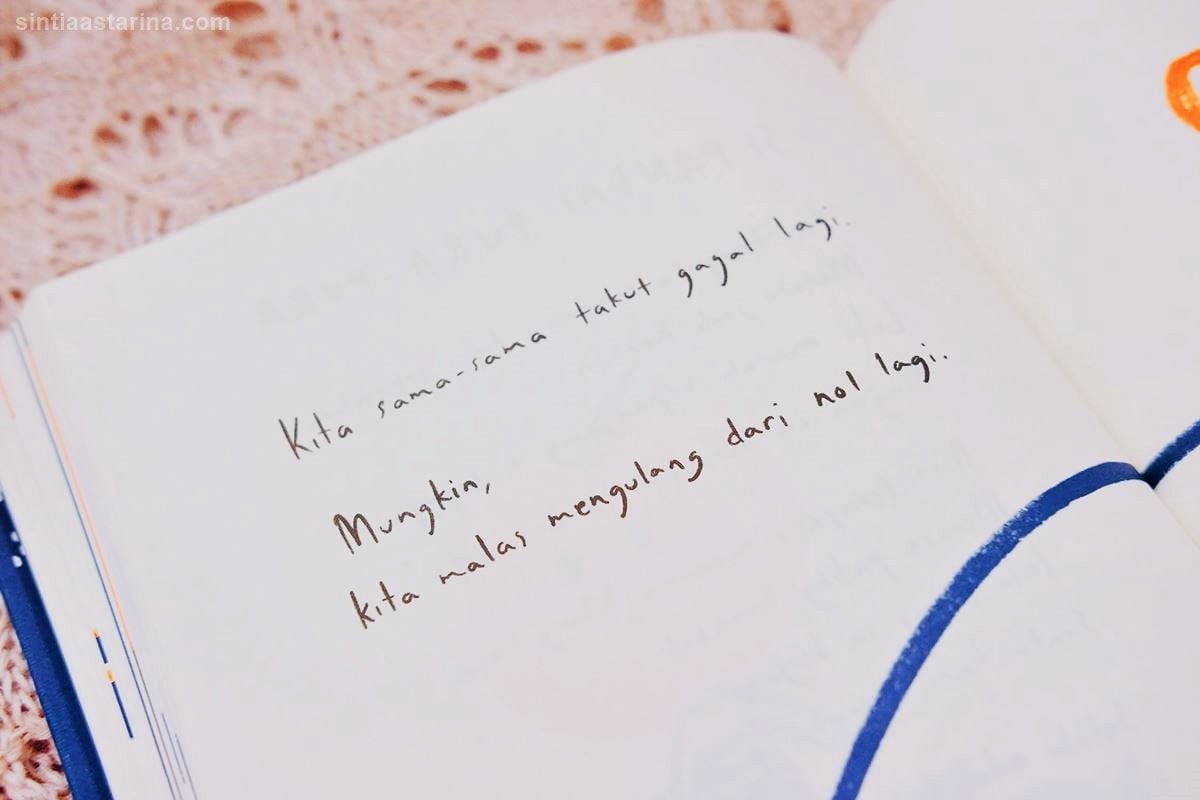 sintiaastarina.com
Kita sama-sama takut gagal lagi.
Mungkin,
kita malas mengulang dari nol lagi.